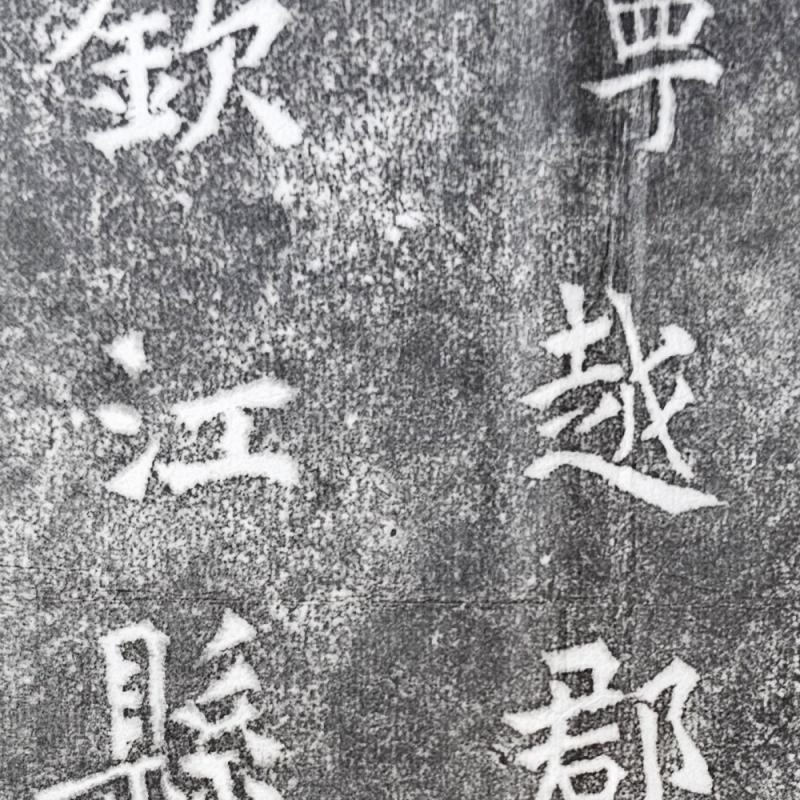 寧越郡
欽江縣